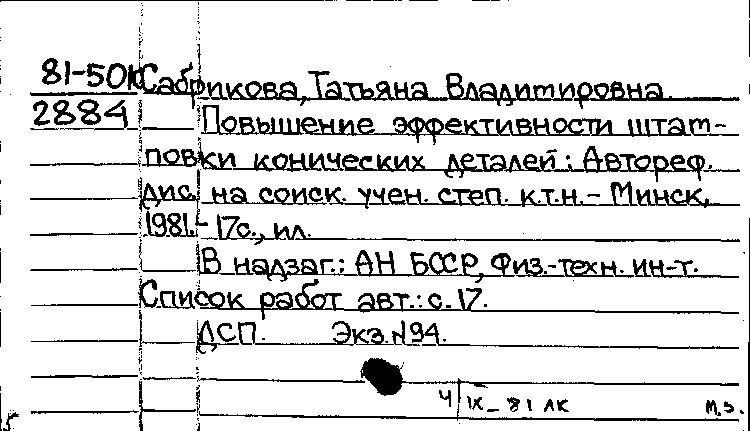 81-501 Сабрикова, Татьяна Владимировна.
2884 Повышение эффективности штам-
повки конических деталей: Автореф.
дис. на соиск. учен. степ. к.т.н. - Минск,
1981. - 17с., ил.
В надзаг.: АН БССР, Физ.-техн. ин-т.
Список работ авт.: с. 17.
ДСП. Экз. №94.
4/IX - 81 ЛК